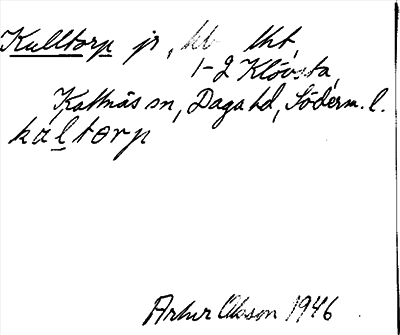 Kulltorp jr, hb tht,
1-2 Klövsta,
Kattnäs sn, Daga hd, Söderm. l.
kal torp
Artur Olsson 1946